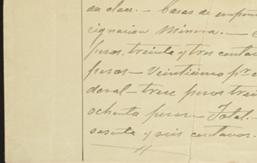 en clase. - Casas de empeñ
cignacion Minera. -
pesos, treinta y tres centav
pesos - Veinticinco p%
deral - trece pesos trei
ochenta pesos - Total. -
sesenta y seis centavos.